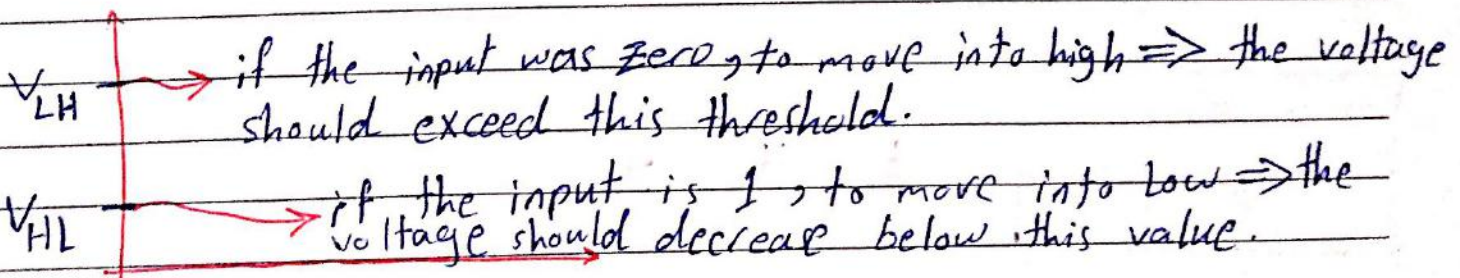 V_LH if the input was zero, to move into high => the voltage
should exceed this threshold.
V_HL if the input is 1, to move into Low => the
voltage should decrease below this value.